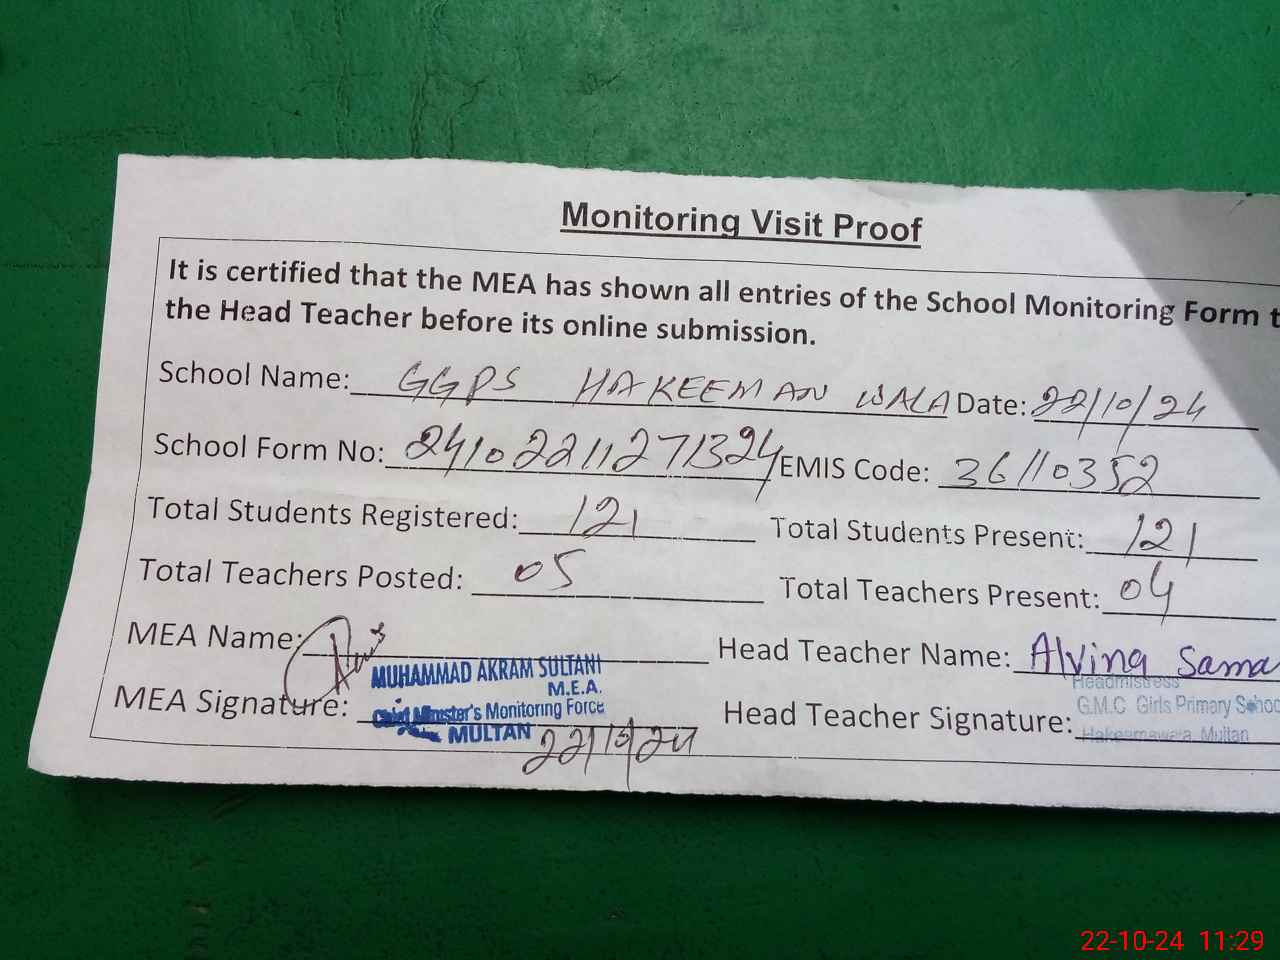 Monitoring Visit Proof
It is certified that the MEA has shown all entries of the School Monitoring Form t
the Head Teacher before its online submission.
School Name: GGPS HAKEEMAN WALA Date: 22/10/24
School Form No: 24102211271324 EMIS Code: 36110352
Total Students Registered: 121 Total Students Present: 121
Total Teachers Posted: 05 Total Teachers Present: 04
MEA Name: Head Teacher Name: Alvina Sama
MUHAMMAD AKRAM SULTANI
M.E.A.
Chief Minister's Monitoring Force
MULTAN
MEA Signature: 22/10/24 Head Teacher Signature:
Headmistress
G.M.C Girls Primary School
Hakeemawala, Multan
22-10-24 11:29